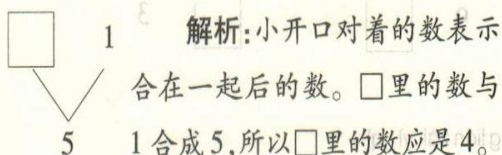 □ 1 解析:小开口对着的数表示
合在一起后的数。□里的数与
5 1合成5,所以□里的数应是4。